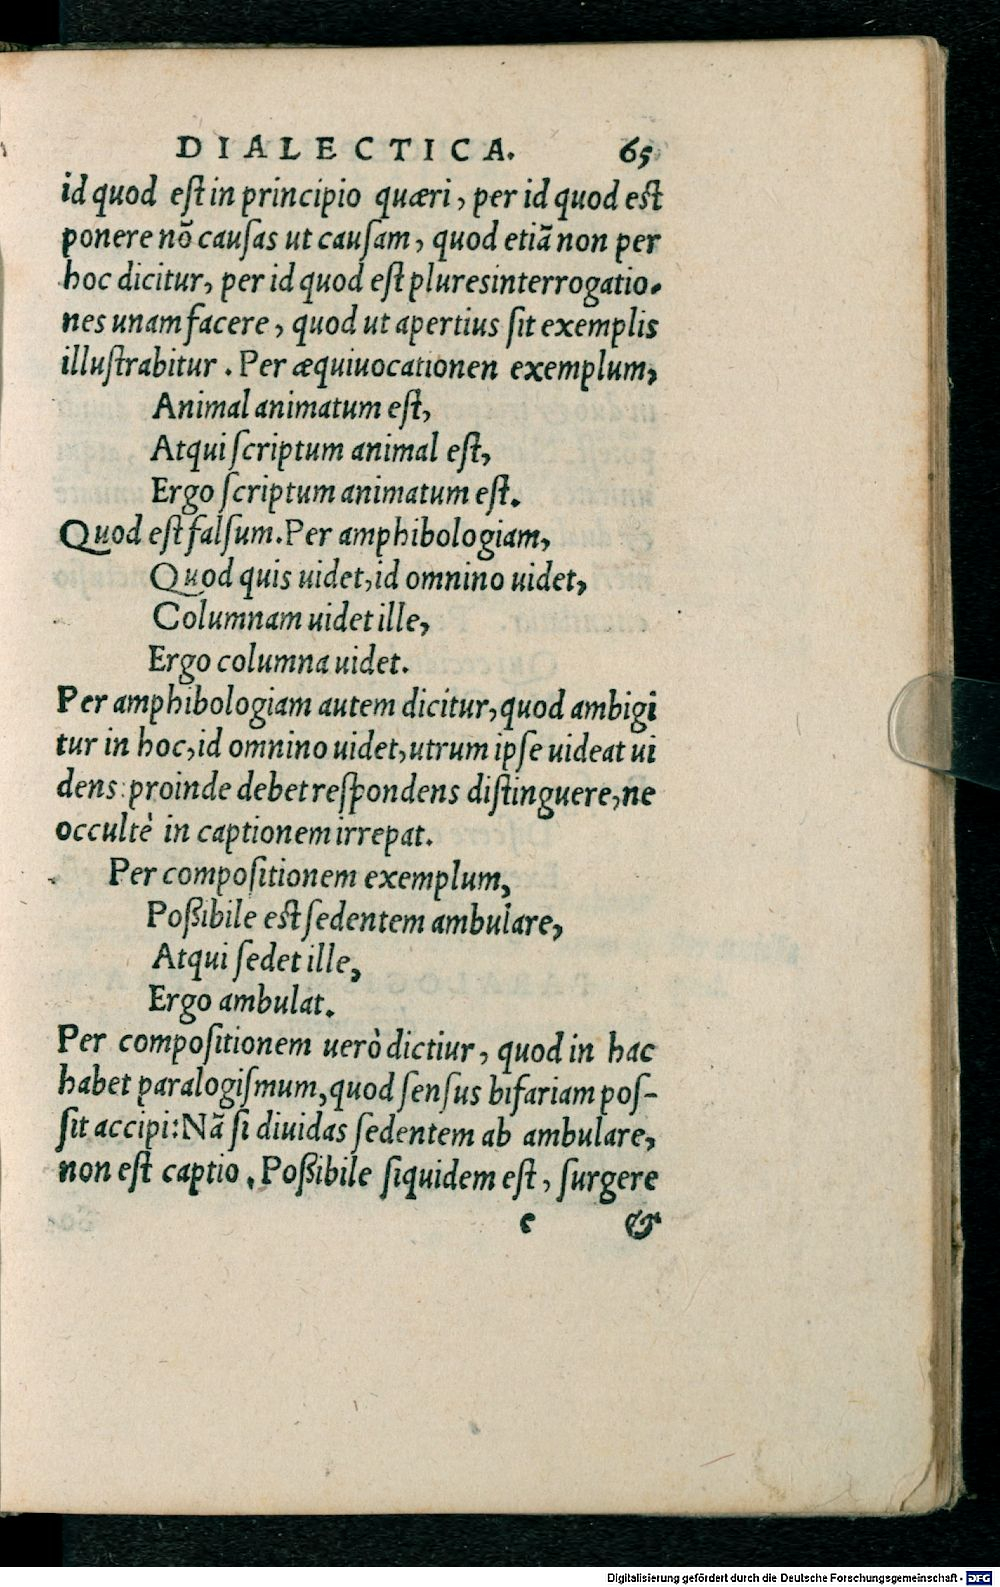 DIALECTICA. 65
id quod est in principio quæri, per id quod est
ponere nõ causas ut causam, quod etiã non per
hoc dicitur, per id quod est pluresinterrogatio-
nes unam facere, quod ut apertius sit exemplis
illustrabitur. Per æquiuocationen exemplum,
Animal animatum est,
Atqui scriptum animal est,
Ergo scriptum animatum est.
Quod est falsum. Per amphibologiam,
Quod quis uidet, id omnino uidet,
Columnam uidet ille,
Ergo columna uidet.
Per amphibologiam autem dicitur, quod ambigi
tur in hoc, id omnino uidet, utrum ipse uideat ui
dens: proinde debet respondens distinguere, ne
occultè in captionem irrepat.
Per compositionem exemplum,
Poßibile est sedentem ambulare,
Atqui sedet ille,
Ergo ambulat.
Per compositionem uerò dictiur, quod in hac
habet paralogismum, quod sensus bifariam pos-
sit accipi: Nã si diuidas sedentem ab ambulare,
non est captio. Poßibile siquidem est, surgere
e &
Digitalisierung gefördert durch die Deutsche Forschungsgemeinschaft - DFG